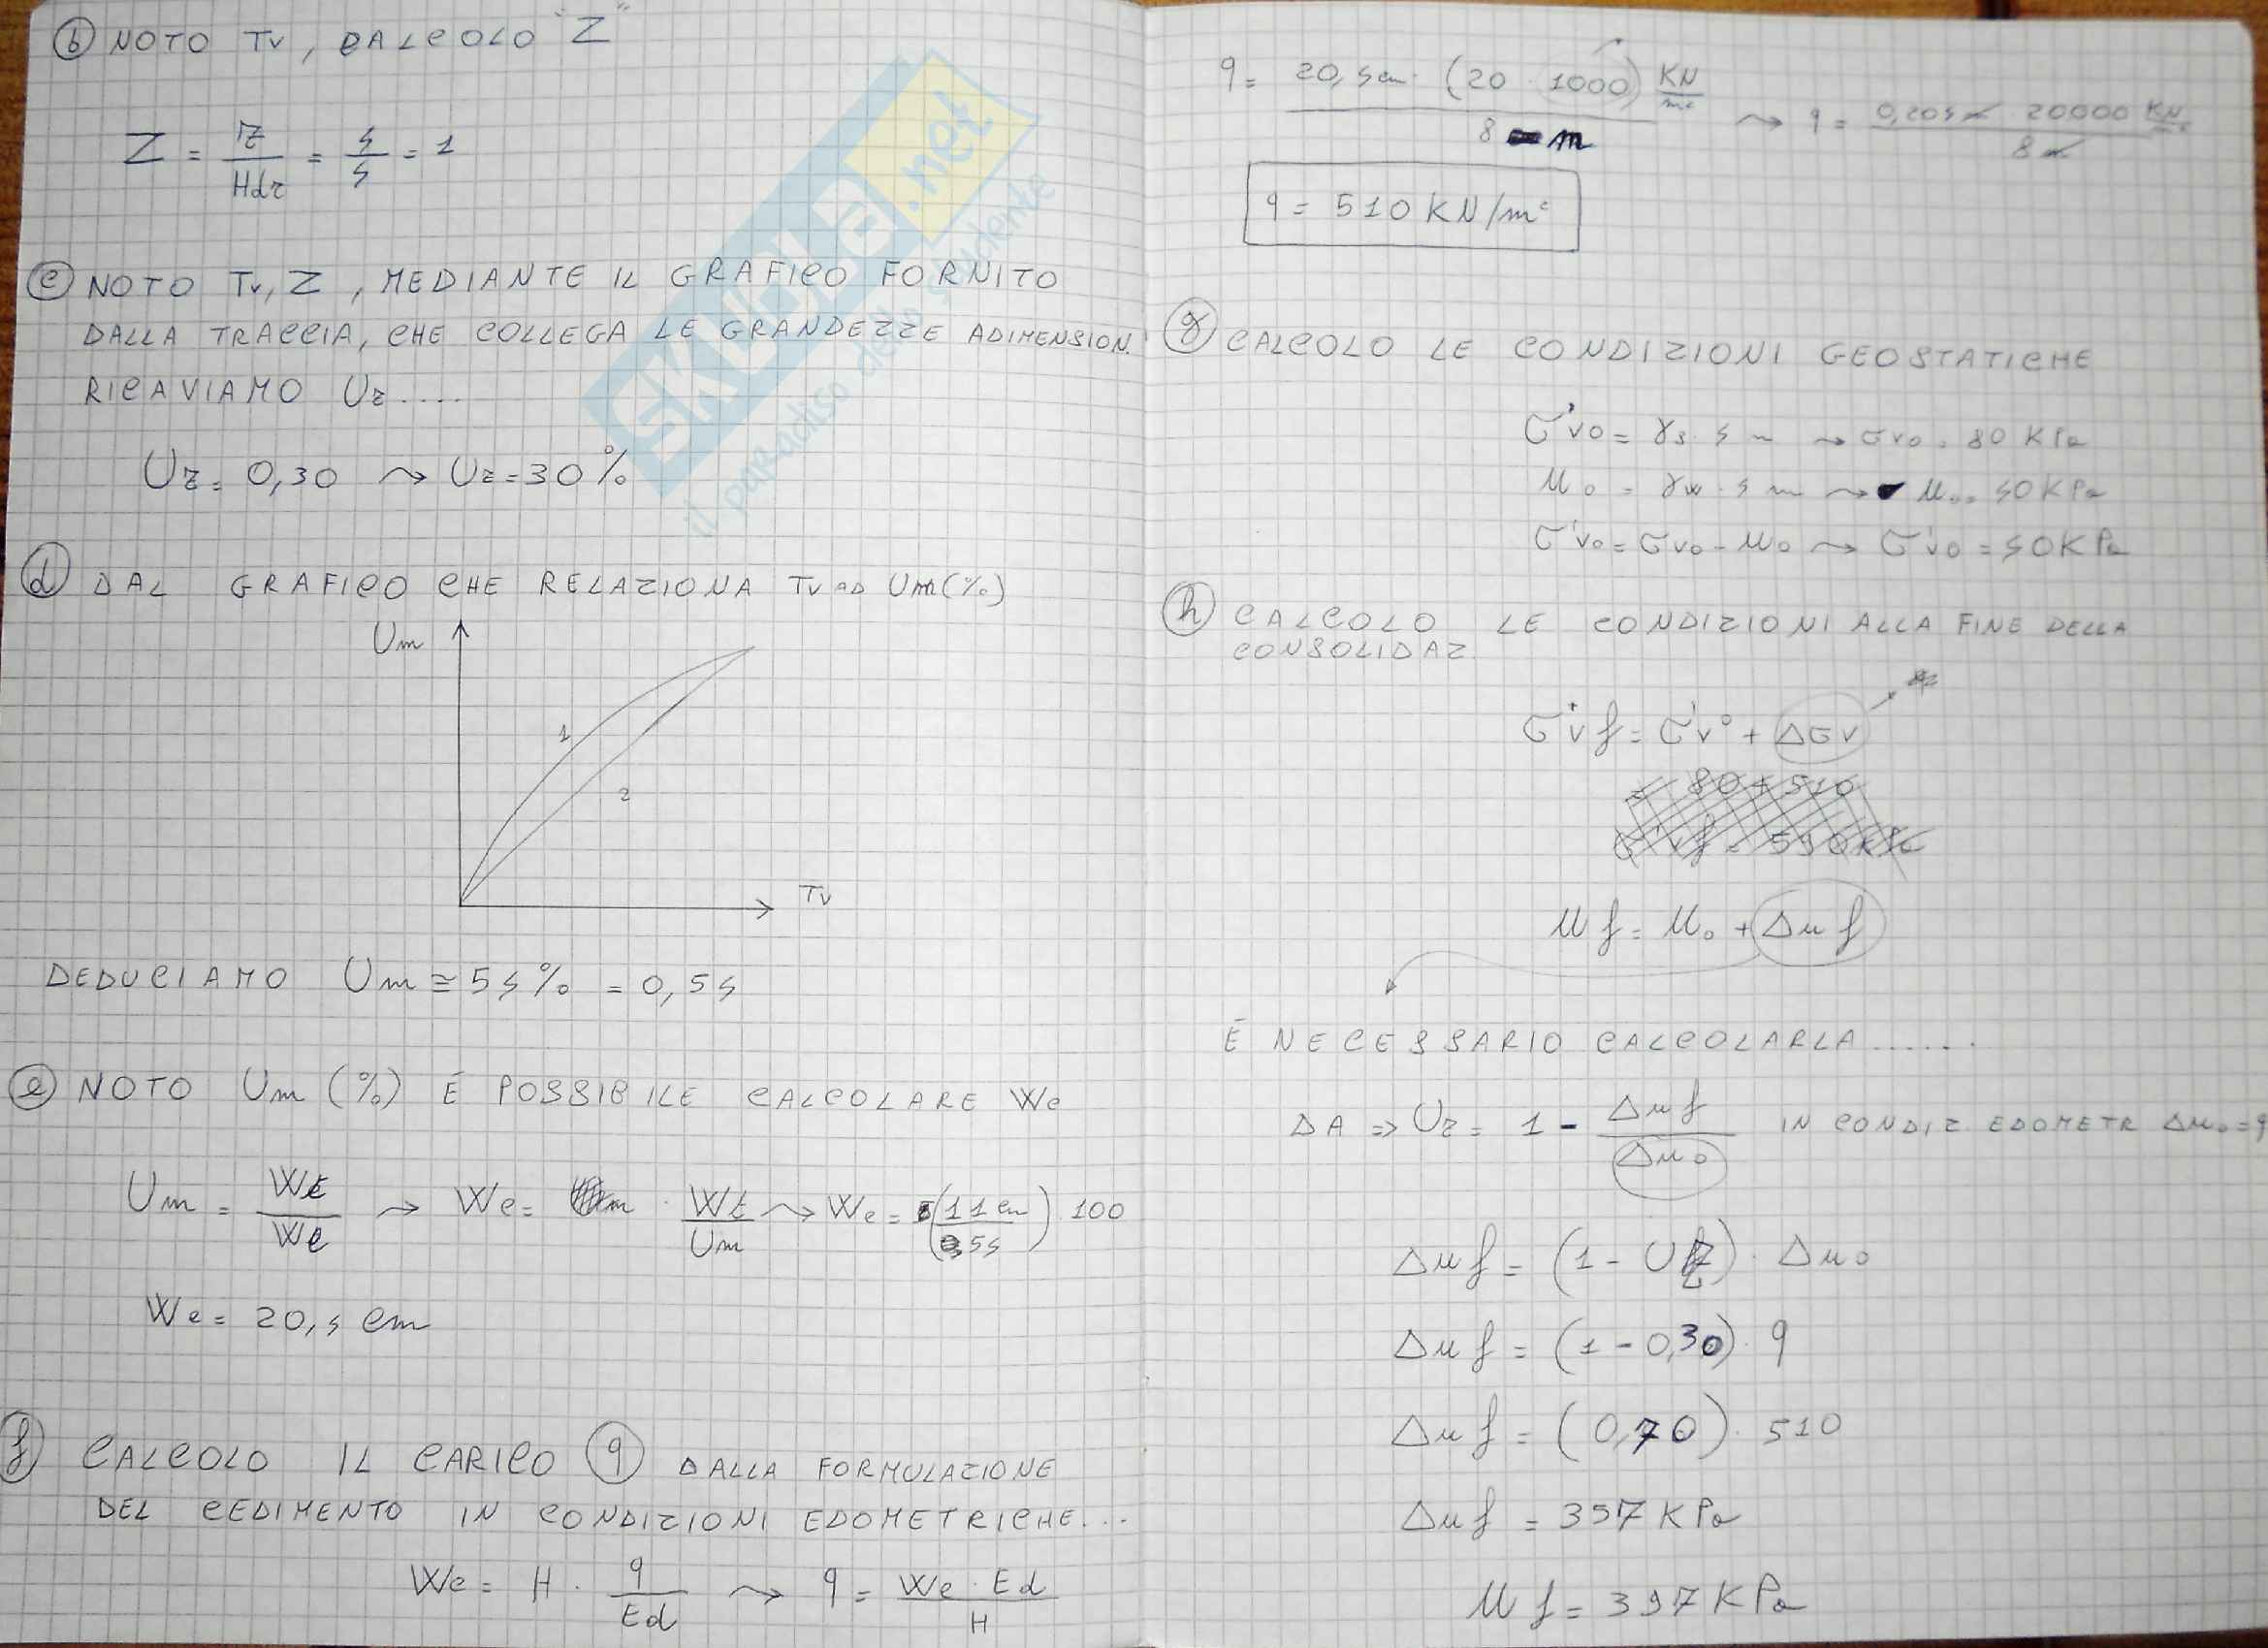 b NOTO Tv, CALCOLO "Z"
Z = z/Hdr = 4/4 = 1
c NOTO Tv, Z, MEDIANTE IL GRAFICO FORNITO
DALLA TRACCIA, CHE COLLEGA LE GRANDEZZE ADIMENSION.
RICAVIAMO Uz....
Uz = 0,30 ⤳ Uz = 30%
d DAL GRAFICO CHE RELAZIONA Tv AD Um(%)
Um
1
2
Tv
DEDUCIAMO Um ≅ 54% = 0,54
e NOTO Um (%) É POSSIBILE CALCOLARE We
Um = Wt/We → We = Wt/Um ⤳ We = (11 cm/54) 100
We = 20,4 cm
f CALCOLO IL CARICO q DALLA FORMULAZIONE
DEL CEDIMENTO IN CONDIZIONI EDOMETRICHE...
We = H · q/Ed ⤳ q = We · Ed/H
q = 20,4 cm · (20 · 1000) KN/m²/8 m ⤳ q = 0,204 m 20000 KN/m²/8 m
q = 510 KN/m²
g CALCOLO LE CONDIZIONI GEOSTATICHE
σ'vo = γs · 4 m ⤳ σvo = 80 KPa
uo = γw · 4 m ⤳ uo = 40 KPa
σ'vo = σvo - uo ⤳ σ'vo = 40 KPa
h CALCOLO LE CONDIZIONI ALLA FINE DELLA
CONSOLIDAZ.
σ'vf = σ'v° + Δσv
= 80 + 510
σ'vf = 590 KPa
uf = uo + Δuf
É NECESSARIO CALCOLARLA......
DA => Uz = 1 - Δuf/Δuo IN CONDIZ EDOMETR Δuo = q
Δuf = (1 - Uz) · Δuo
Δuf = (1 - 0,30) · q
Δuf = (0,70) · 510
Δuf = 357 KPa
uf = 397 KPa
SKUOLA.net
il paradiso dello studente